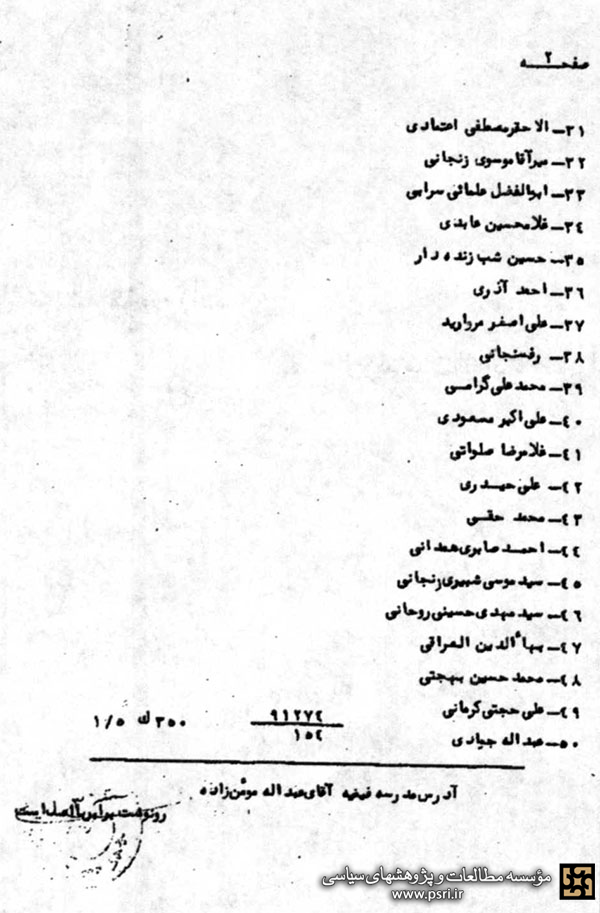 صفحـــه ۲
۳۱ــ الاحقر مصطفی اعتمادی
۳۲ــ میرآقا موسوی زنجانی
۳۳ــ ابوالفضل علمائی سرابی
۳۴ــ غلامحسین عابدی
۳۵ــ حسین شب زنده دار
۳۶ــ احمد آذری
۳۷ــ علی اصغر مروارید
۳۸ــ رفسنجانی
۳۹ــ محمد علی گرامـی
۴۰ــ علی اکبر مسعودی
۴۱ــ غلامرضا صلواتی
۴۲ــ علی حیـدری
۴۳ــ محمد حقـی
۴۴ــ احمـد صابری همدانی
۴۵ــ سید موسی شبیری زنجانی
۴۶ــ سید مهدی حسینی روحانی
۴۷ــ بهاءالدین العراقی
۴۸ــ محمد حسین بهجتی
۴۹ــ علی حجتی کرمانی
۵۰ــ عبداله جیادی
۹۱۲۷۴
۱۵۴
۳۵۰ ك ۱/۵
آدرس مدرسه فیضیه آقای عبداله مومٔن زاده
رونوشت برابر با اصل است
مؤسسه مطالعات و پژوهشهای سیاسی
www.psri.ir